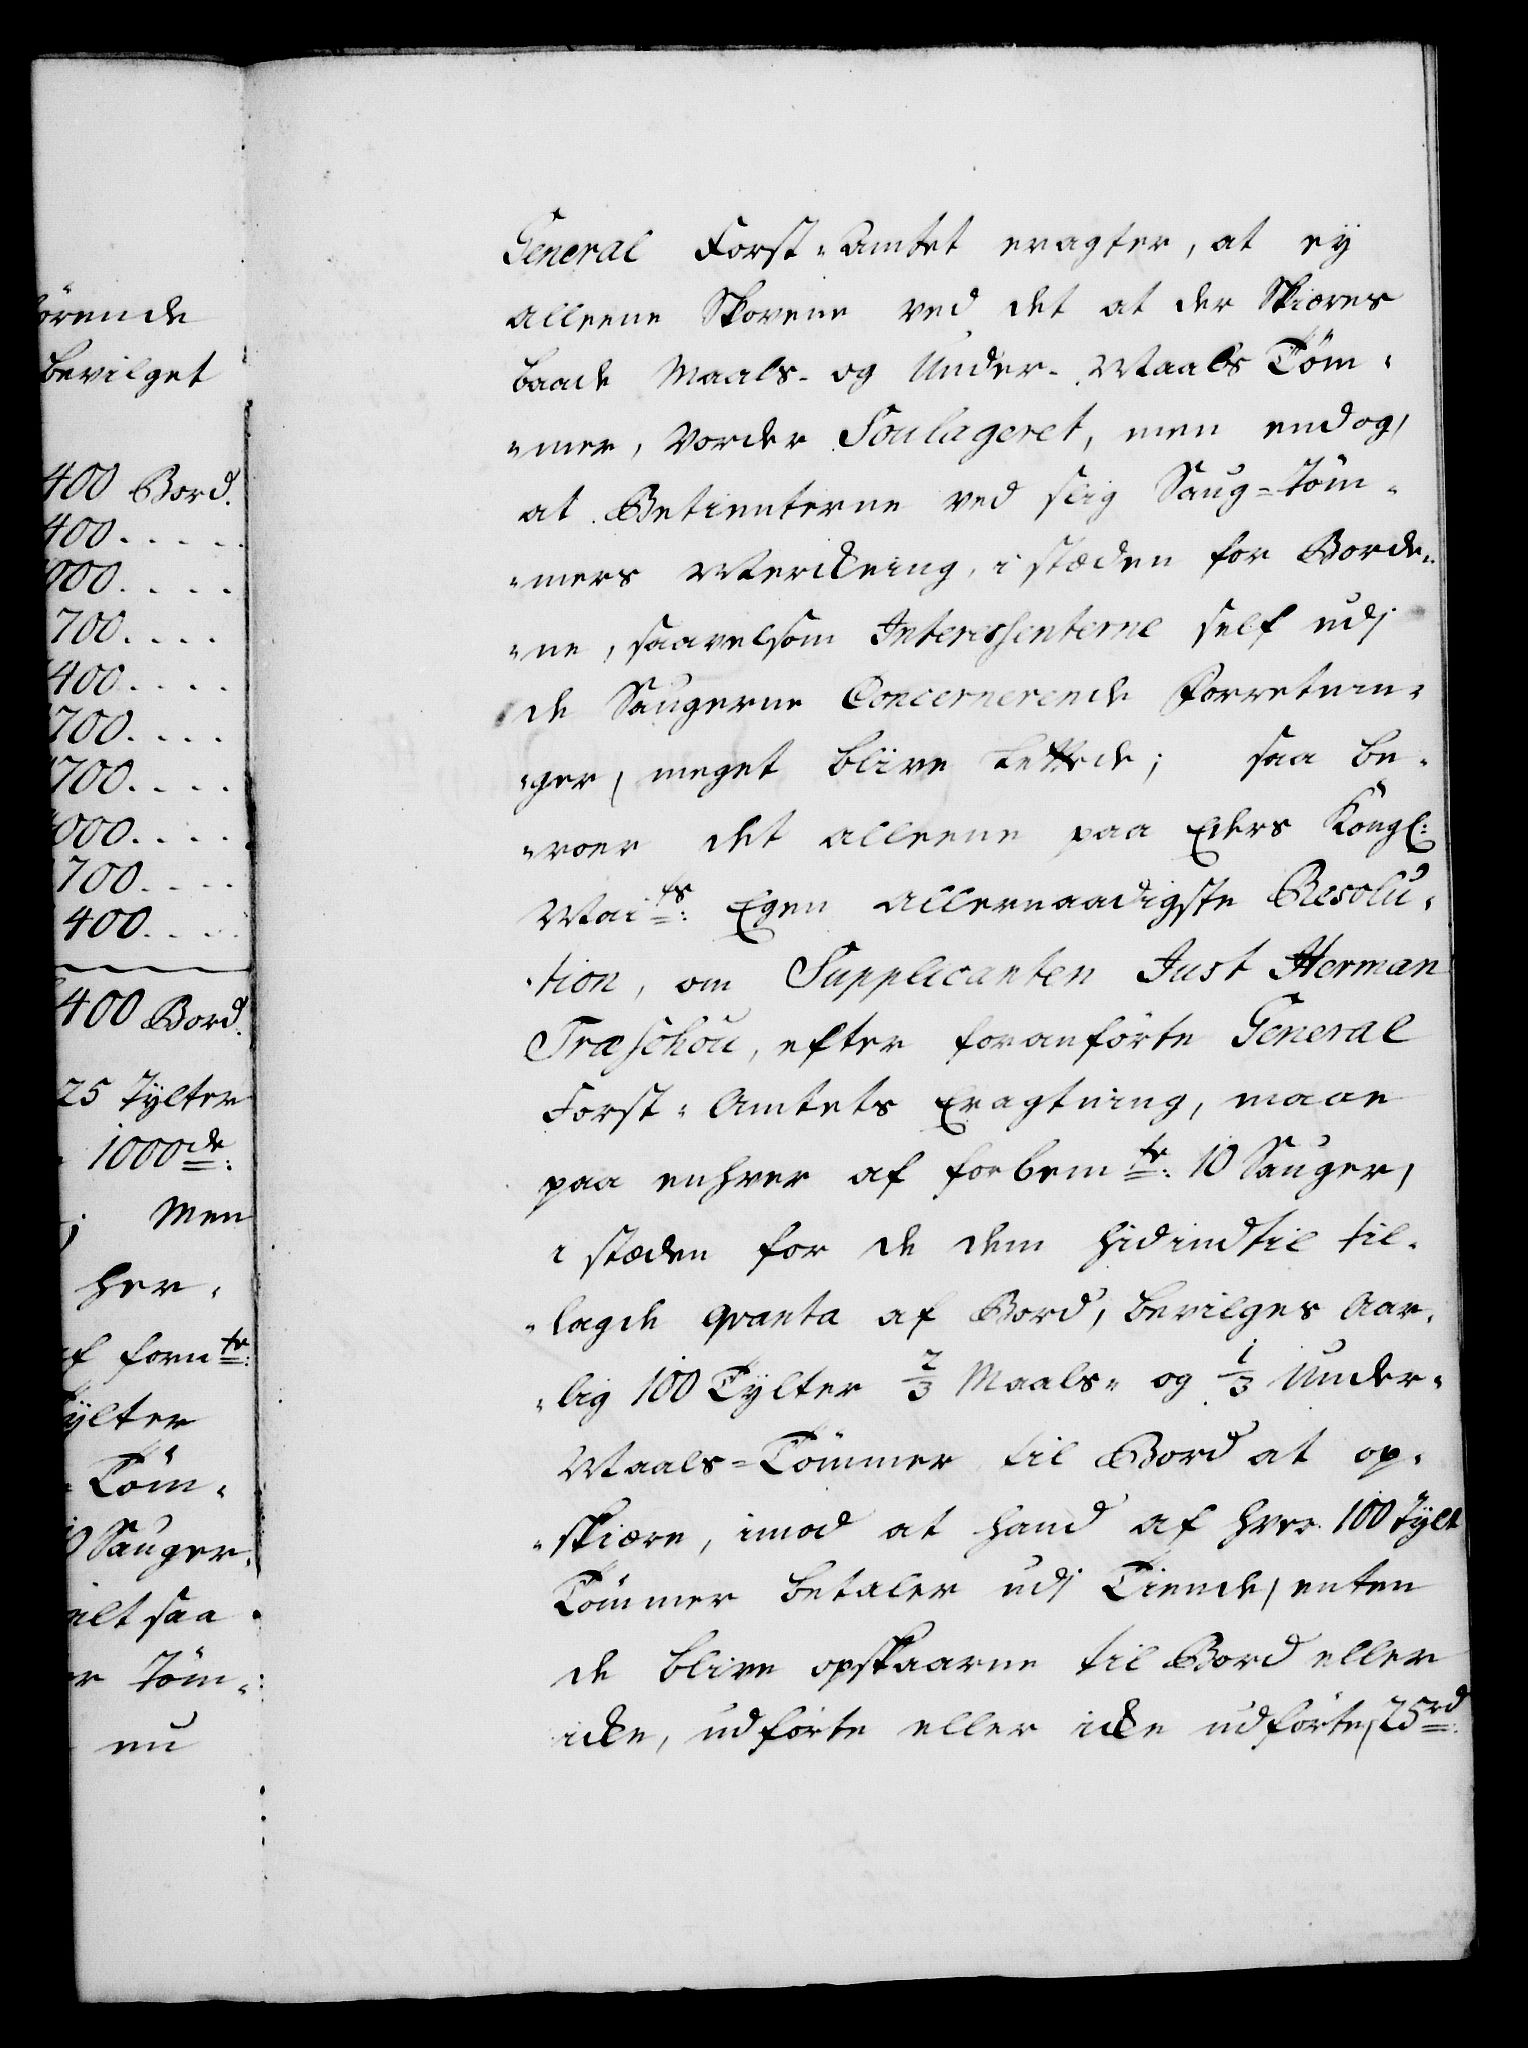 ørende
bevilget
400 Bord.
400. . . . .
000. . . .
700. . . .
400. . . .
700. . . .
700. . . .
000. . . .
700. . . .
400. . . .
400 Bord.
25 Tylter
1000de:
j Men
her-
f fornte:
ylter
Töm-
10 Sauger.
alt saa
er Töm-
nu
General Forst-Amtet eragter, at ej
alleene Skovene ved det at der Skiæres
baade Maals- og Under-Maals Töm-
-mer, vorder Soulageret, men endog,
at Betienterne ved slig Saug-Töm-
-mers Merckning, i stæden for Borde-
-ne, saavelsom Interessenterne self udj
de Saugerne Concernerende Forretnin-
-ger, meget blive lettede; saa be-
-roer det alleene paa Eders Kongl:
Maits: Egen allernaadigste Resolu-
-tion, om Supplicanten Just Herman
Træschou, efter foranförte General
Forst-Amtets Eragtning, maae
paa enhver af forbemte: 10 Sauger,
i stæden for de dem hidindtil til-
-lagde qvanta af Bord, bevilges Aar-
-lig 100 Tylter 2/3 Maals- og 1/3 Under-
Maals-Tömmer til Bord at op-
-skiære, imod at hand af hver 100 Tylt
Tömmer betaler udj Tiende, enten
de blive opskaarne til Bord eller
icke, udförte eller icke udförte, 25rd: